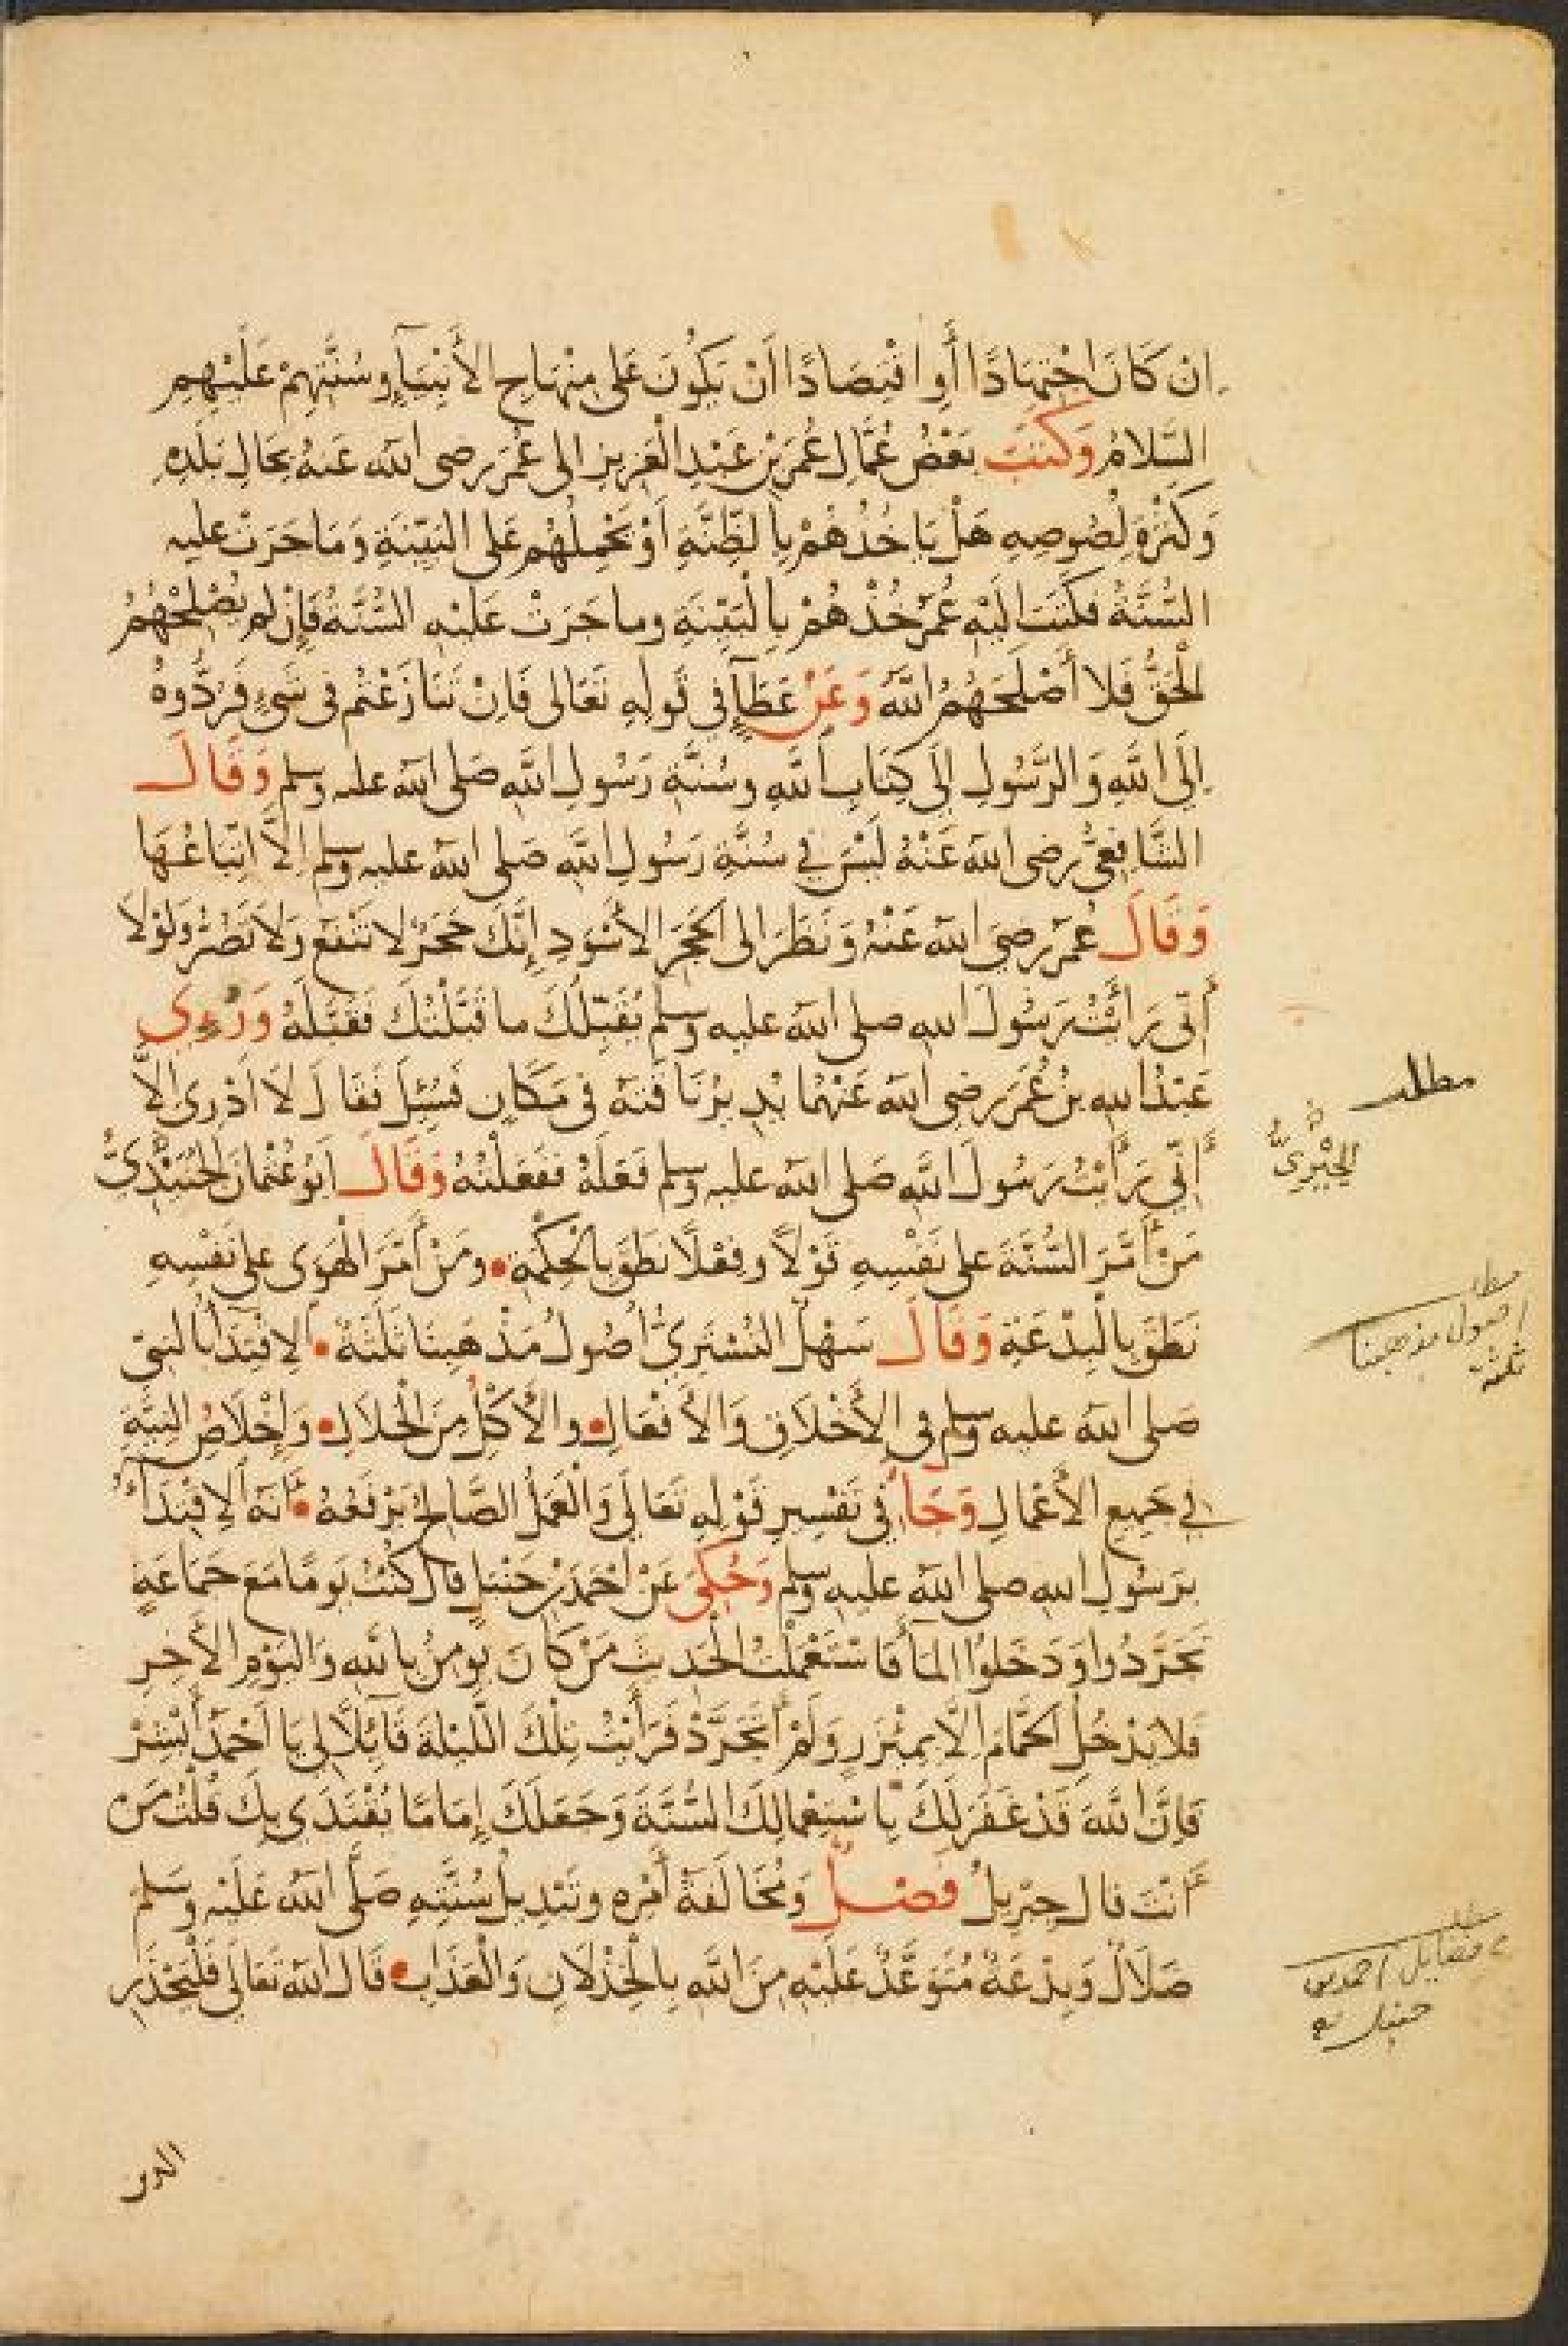 اِنْ كَانَ اجْتِهَادًا أَوِ اقْتِصَادًا اَنْ يَكُونَ عَلَى مِنْهَاجِ الأَنْبِيَآءِ وسُنَّتِهِمْ عَلَيْهِمِ
السَّلَامُ وَكَتَبَ بَعْضُ عُمَّالِ عُمَرَ بْنِ عَبْدِ الْعَزِيزِ الى عُمَرَ رضى الله عَنهُ بِحَالِ بَلَدِهِ
وَكَثْرَةِ لُصُوصِهِ هَلْ يَاخُذُهُمْ بِالظِّنَّةِ اَوْ يَحْمِلُهُم عَلى البَيِّنَةِ وَمَا جَرَتْ عليه
السُّنَّةُ فكَتَبَ الَيْهِ عُمَرُ خُذْهُمْ بِالْبَيِّنَةِ وما جَرَتْ عَلَيْهِ السُّنَّةُ فَاِنْ لم يُصْلِحْهُمُ
الْحَقُّ فَلا أَصْلَحَهُمُ اللهُ وَعَنْ عَطَآءٍ فِي قَولِهِ تَعَالى فَاِنْ تَنَازَعْتُم فى شَىْءٍ فَرُدُّوهُ
اِلَى اللهِ وَالرَّسُولِ اِلَى كِتَابِ اللهِ وسُنَّةِ رَسُولِ اللهِ صَلى الله عليه وسلم وَقَالَ
الشَّافِعىُّ رضى الله عَنْهُ لَيْسَ فِي سُنَّةِ رَسُولِ اللهِ صَلى الله عليه وسلم الاَّ اتِّبَاعُهَا
وَقَالَ عُمَرُ رضِىَ الله عَنْهُ وَنَظَرَ الى الحَجَرِ الأَسْوَدِ اِنَّكَ حَجَرٌ لا تَنْفَع وَلا تَضُرُّ وَلَوْلَا
أَنِّى رَأَيْتُ رَسُولَ الله صلى الله عليه وسلم يُقَبِّلُكَ ما قَبَّلْتُكَ فَقَبَّلَهُ وَرُءِىَ
عَبْدُ الله بنُ عُمَرَ رضى الله عَنْهُمَا يُدِيرُ نَاقَتَهُ فى مَكَانٍ فَسُئِلَ فَقَالَ لَا اَدْرِى اِلَّا
أَنِّي رَأَيْتُ رَسُولَ اللهِ صَلى الله عليه وسلم فَعَلَهُ فَفَعَلْتُهُ وَقَالَ اَبُو عُثْمَانَ الْجُنَيْدِىُّ
مَنْ أَمَّرَ السُّنَّةَ على نَفْسِهِ قَوْلًا وفِعْلًا نَطَقَ بالْحِكْمَةِ • ومَنْ أَمَّرَ الْهَوَى على نَفْسِهِ
نَطَقَ بِالْبِدْعَةِ وَقَالَ سَهْلٌ التُّسْتَرِىُّ اُصُولُ مَذْهَبِنَا ثَلٰثَةٌ • الاِقْتِدَآءُ بالنبىّ
صَلى الله عليه وسلم فى الأَخْلَاقِ وَالأَفْعَالِ • والأَكْلُ مِنَ الْحَلالِ • وَاِخْلَاصُ النِيَّةِ
فِي جَمِيعِ الأَعْمَالِ وَجَآءَ فِي تَفْسِيرِ قَوْلِهِ تَعَالَى وَالْعَمَلُ الصَّالِحُ يَرْفَعُهُ • أَنَّهُ الاِقْتِدَآءُ
بِرَسُولِ الله صلى الله عليه وسلم وَحُكِىَ عَنْ اَحْمَدَ بْنِ حَنْبَلٍ قالَ كُنْتُ يَومًا مَعَ جَمَاعَةٍ
تَجَرَّدُوا وَدَخَلُوا المَآءَ فَاسْتَعْمَلْتُ الْحَدِيثَ مَنْ كَانَ يُومِنُ بِاللهِ وَاليَوْمِ الآخِرِ
فَلا يَدْخُلِ الحَمَّامَ اِلَّا بِمِئْزَرٍ وَلَمْ أَتَجَرَّدْ فَرَأَيْتُ تِلْكَ اللَّيْلَةَ قَآئِلًا لِى يَا اَحْمَدُ أَبْشِرْ
فَاِنَّ اللهَ قَدْ غَفَرَ لَكَ بِاسْتِعْمَالِكَ السُّنَّةَ وَجَعَلَكَ اِمَامًا يُقْتَدَى بِكَ قُلْتُ مَنْ
أَنْتَ قالَ جِبْرِيلُ فَصْلٌ وَمُخَالَفَةُ أَمْرِهِ وتَبْدِيلُ سُنَّتِهِ صَلَّى الله عَلَيْهِ وسلم
ضَلَالٌ وَبِدْعَةٌ مُتَوَعَّدٌ عَلَيْهِ مِنَ اللهِ بِالْخِذْلَانِ وَالْعَذَابِ • قَالَ الله تَعَالَى فَلْيَحْذَرِ
الذين
مطلب
الحِيْرِىُّ
مطلب
اصول مذهبنا
ثلثة
مطلب
فضايل احمد بن
حنبل